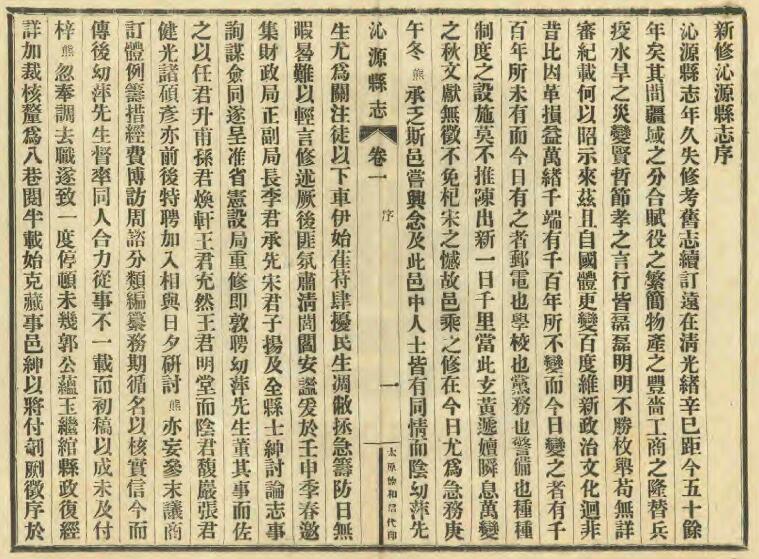 新修沁源縣志序
沁源縣志年久失修考舊志續訂遠在清光緒辛巳距今五十餘
年矣其間疆域之分合賦役之繁簡物產之豐嗇工商之隆替兵
疫水旱之災變賢哲節孝之言行皆磊磊明明不勝枚舉苟無詳
審紀載何以昭示來茲且自國體更變百度維新政治文化迥非
昔比因革損益萬緒千端有千百年所不變而今日變之者有千
百年所未有而今日有之者郵電也學校也黨務也警備也種種
制度之設施莫不推陳出新一日千里當此玄黃遞嬗瞬息萬變
之秋文獻無徵不免杞宋之憾故邑乘之修在今日尤爲急務庚
午冬熊承乏斯邑嘗興念及此邑中人士皆有同情而陰幼萍先
沁源縣志
卷一
序
一
太原協和信代印
生尤爲關注徒以下車伊始萑苻肆擾民生凋敝拯急籌防日無
暇晷難以輕言修述厥後匪氛肅清閭閻安謐爰於壬申季春邀
集財政局正副局長李君承先宋君子揚及全縣士紳討論志事
詢謀僉同遂呈准省憲設局重修即敦聘幼萍先生董其事而佐
之以任君升甫孫君煥軒王君充然王君明堂而陰君馥嚴張君
健光諸碩彥亦前後特聘加入相與日夕研討熊亦妄參末議商
訂體例籌措經費博訪周諮分類編纂務期循名以核實信今而
傳後幼萍先生督率同人合力從事不一載而初稿以成未及付
梓熊忽奉調去職遂致一度停頓未幾郭公蘊玉繼綰縣政復經
詳加裁核釐爲八卷閱半載始克蕆事邑紳以將付剞劂徵序於